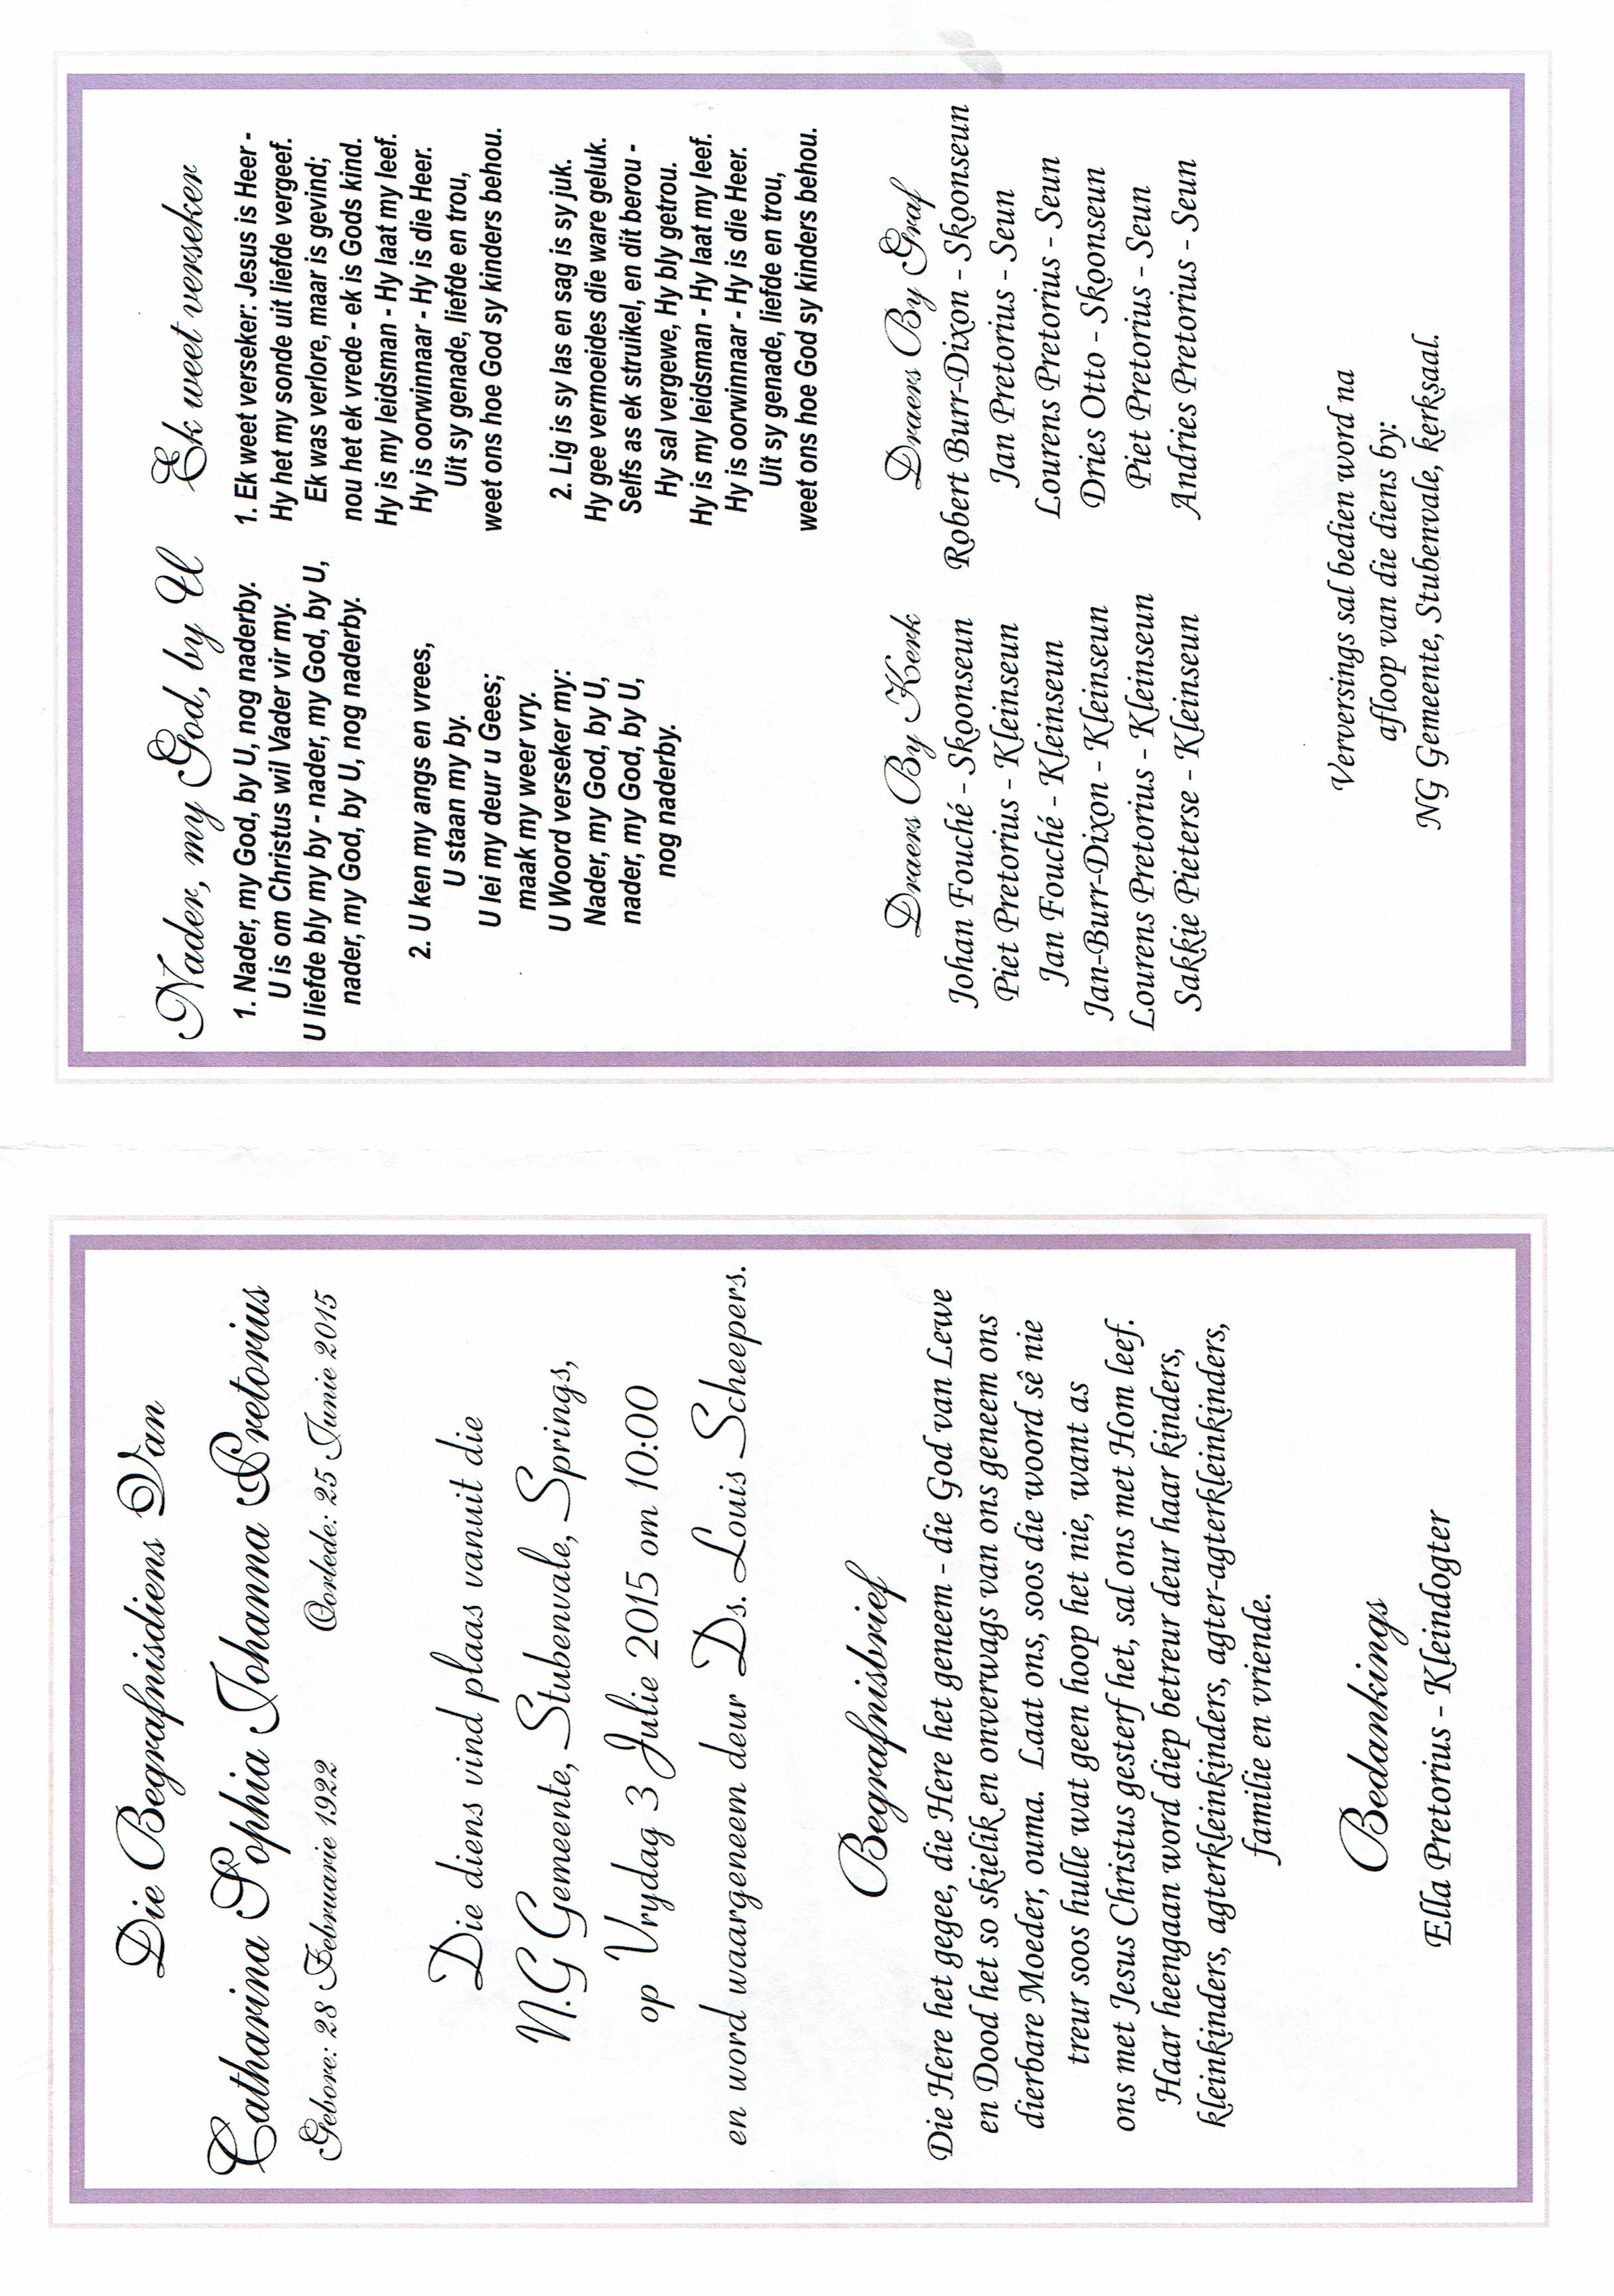 Die Begrafnisdiens Van
Catharina Sophia Johanna Pretorius
Gebore: 28 Februarie 1922 Oorlede: 25 Junie 2015
Die diens vind plaas vanuit die
N.G Gemeente, Stubenvale, Springs,
op Vrydag 3 Julie 2015 om 10:00
en word waargeneem deur Ds. Louis Scheepers.
Begrafnisbrief
Die Here het gegee, die Here het geneem - die God van Lewe
en Dood het so skielik en onverwags van ons geneem ons
dierbare Moeder, ouma. Laat ons, soos die woord sê nie
treur soos hulle wat geen hoop het nie, want as
ons met Jesus Christus gesterf het, sal ons met Hom leef.
Haar heengaan word diep betreur deur haar kinders,
kleinkinders, agterkleinkinders, agter-agterkleinkinders,
familie en vriende.
Bedankings
Ella Pretorius - Kleindogter
Nader, my God, by U
1. Nader, my God, by U, nog naderby.
U is om Christus wil Vader vir my.
U liefde bly my by - nader, my God, by U,
nader, my God, by U, nog naderby.
2. U ken my angs en vrees,
U staan my by.
U lei my deur u Gees;
maak my weer vry.
U Woord verseker my:
Nader, my God, by U,
nader, my God, by U,
nog naderby.
Ek weet verseker
1. Ek weet verseker: Jesus is Heer -
Hy het my sonde uit liefde vergeef.
Ek was verlore, maar is gevind;
nou het ek vrede - ek is Gods kind.
Hy is my leidsman - Hy laat my leef.
Hy is oorwinnaar - Hy is die Heer.
Uit sy genade, liefde en trou,
weet ons hoe God sy kinders behou.
2. Lig is sy las en sag is sy juk.
Hy gee vermoeides die ware geluk.
Selfs as ek struikel, en dit berou -
Hy sal vergewe, Hy bly getrou.
Hy is my leidsman - Hy laat my leef.
Hy is oorwinnaar - Hy is die Heer.
Uit sy genade, liefde en trou,
weet ons hoe God sy kinders behou.
Draers By Kerk
Johan Fouché - Skoonseun
Piet Pretorius - Kleinseun
Jan Fouché - Kleinseun
Jan-Burr-Dixon - Kleinseun
Lourens Pretorius - Kleinseun
Sakkie Pieterse - Kleinseun
Draers By Graf
Robert Burr-Dixon - Skoonseun
Jan Pretorius - Seun
Lourens Pretorius - Seun
Dries Otto - Skoonseun
Piet Pretorius - Seun
Andries Pretorius - Seun
Verversings sal bedien word na
afloop van die diens by:
NG Gemeente, Stubenvale, kerksaal.